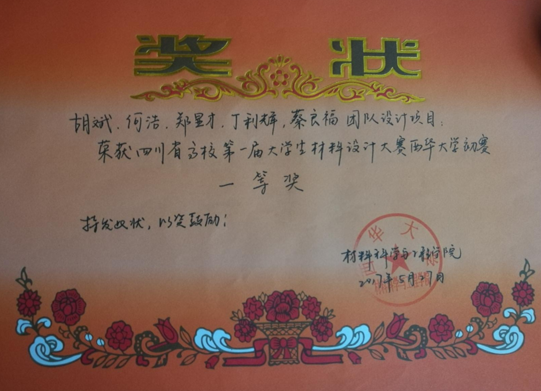 奖状
胡斌、何浩、郑星才、丁利辉,蔡良福团队设计项目:
荣获四川省高校第一届大学生材料设计大赛西华大学初赛
一等奖
特发奖状,以资鼓励;
材料科学与工程学院
2017年5月27日